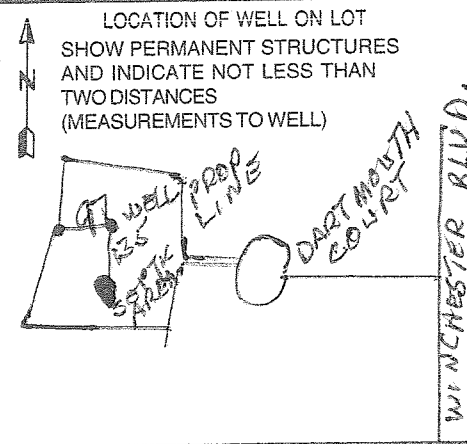 LOCATION OF WELL ON LOT
SHOW PERMANENT STRUCTURES
AND INDICATE NOT LESS THAN
TWO DISTANCES
(MEASUREMENTS TO WELL)
N
97
WELL
PROP
LINE
135
SEPTIC
AREA
DARTMOUTH
COURT
WINCHESTER BLVD.